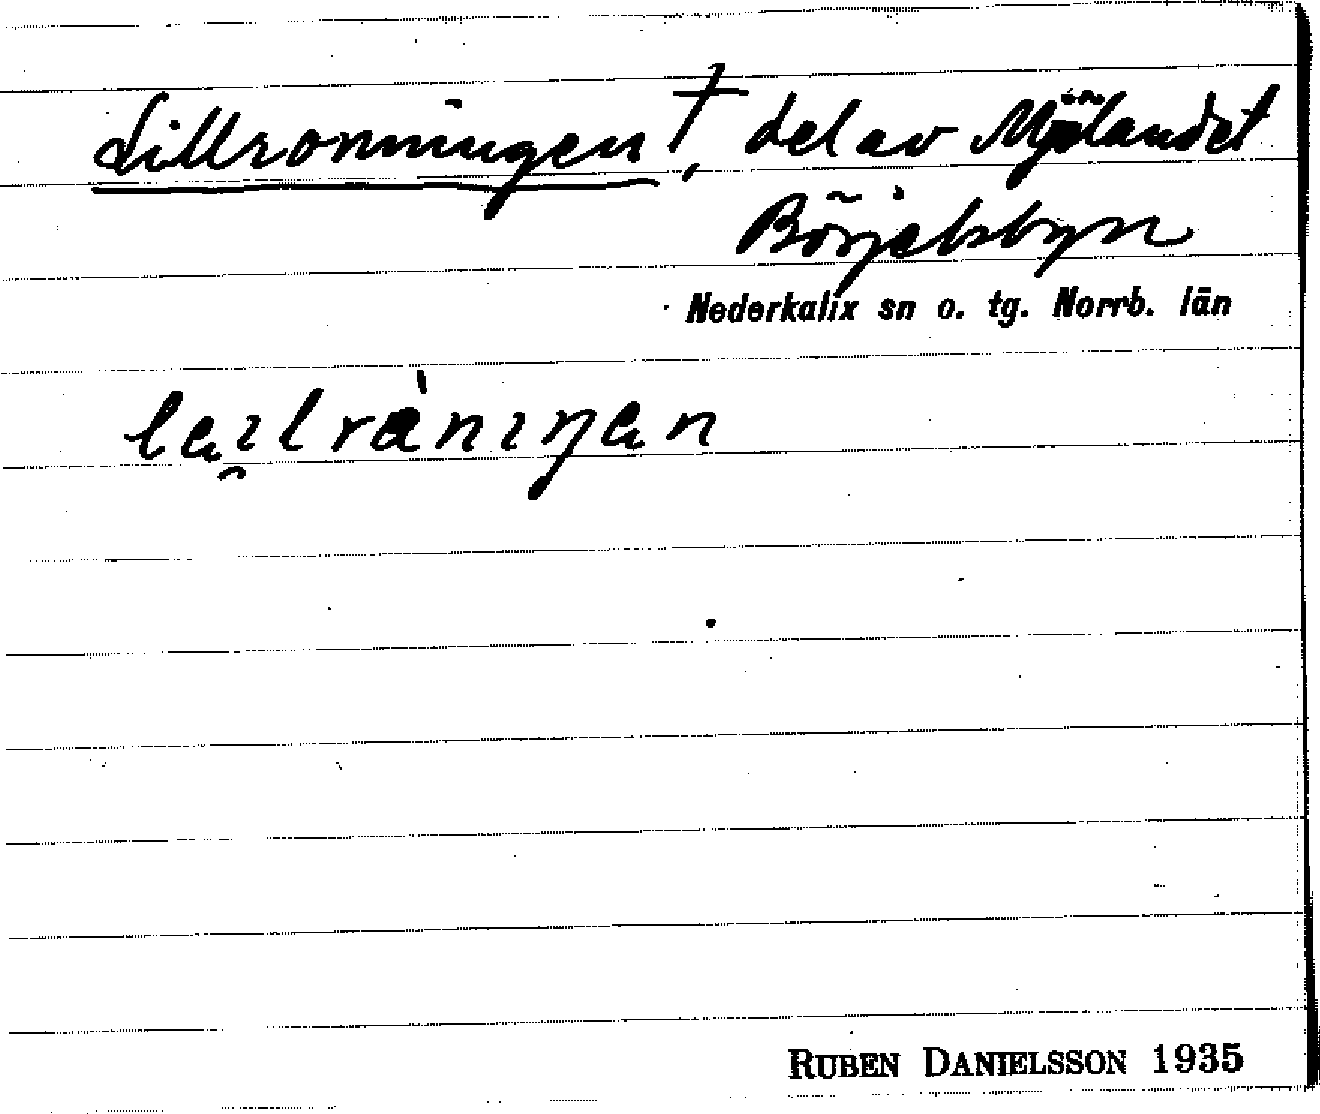 Lillronningen †, del av Mjölandet
Börjelsbyn
Nederkalix sn o. tg. Norrb. län
RUBEN DANIELSSON 1935